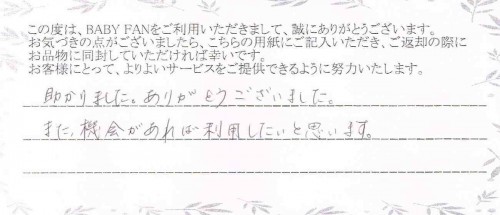 この度は、BABY FANをご利用いただきまして、誠にありがとうございます。
お気づきの点がございましたら、こちらの用紙にご記入いただき、ご返却の際に
お品物に同封していただければ幸いです。
お客様にとって、よりよいサービスをご提供できるように努力いたします。
助かりました。ありがとうございました。
また、機会があれば利用したいと思います。